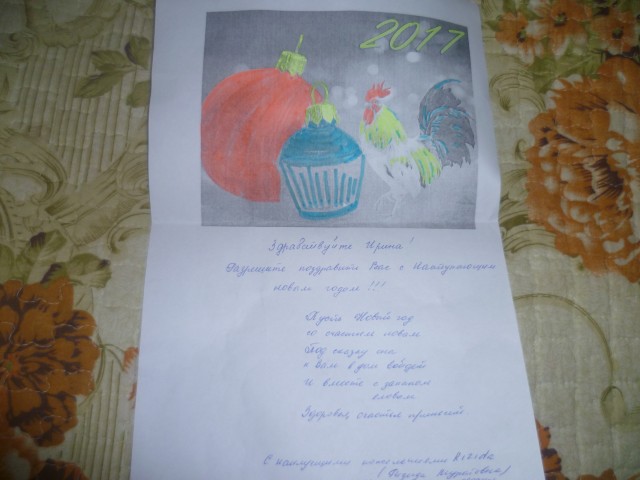 2017
Здравствуйте Ирина!
Разрешите поздравить Вас с Наступающим
новым годом!!!
Идёт Новый год
со счастьем новым
Под сказку
к Вам в дом войдет
И вместе с
словом
Здоровья, счастья принесёт
С наилучшими пожеланиями